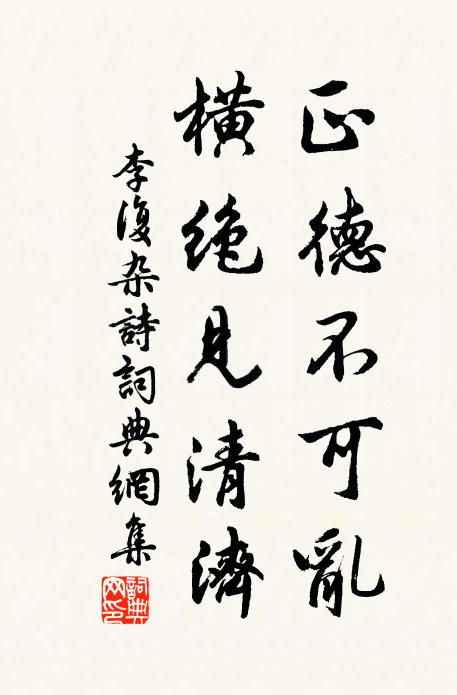 正德不可亂
橫絶見清濟
李復杂詩詞典網集
詞典网印